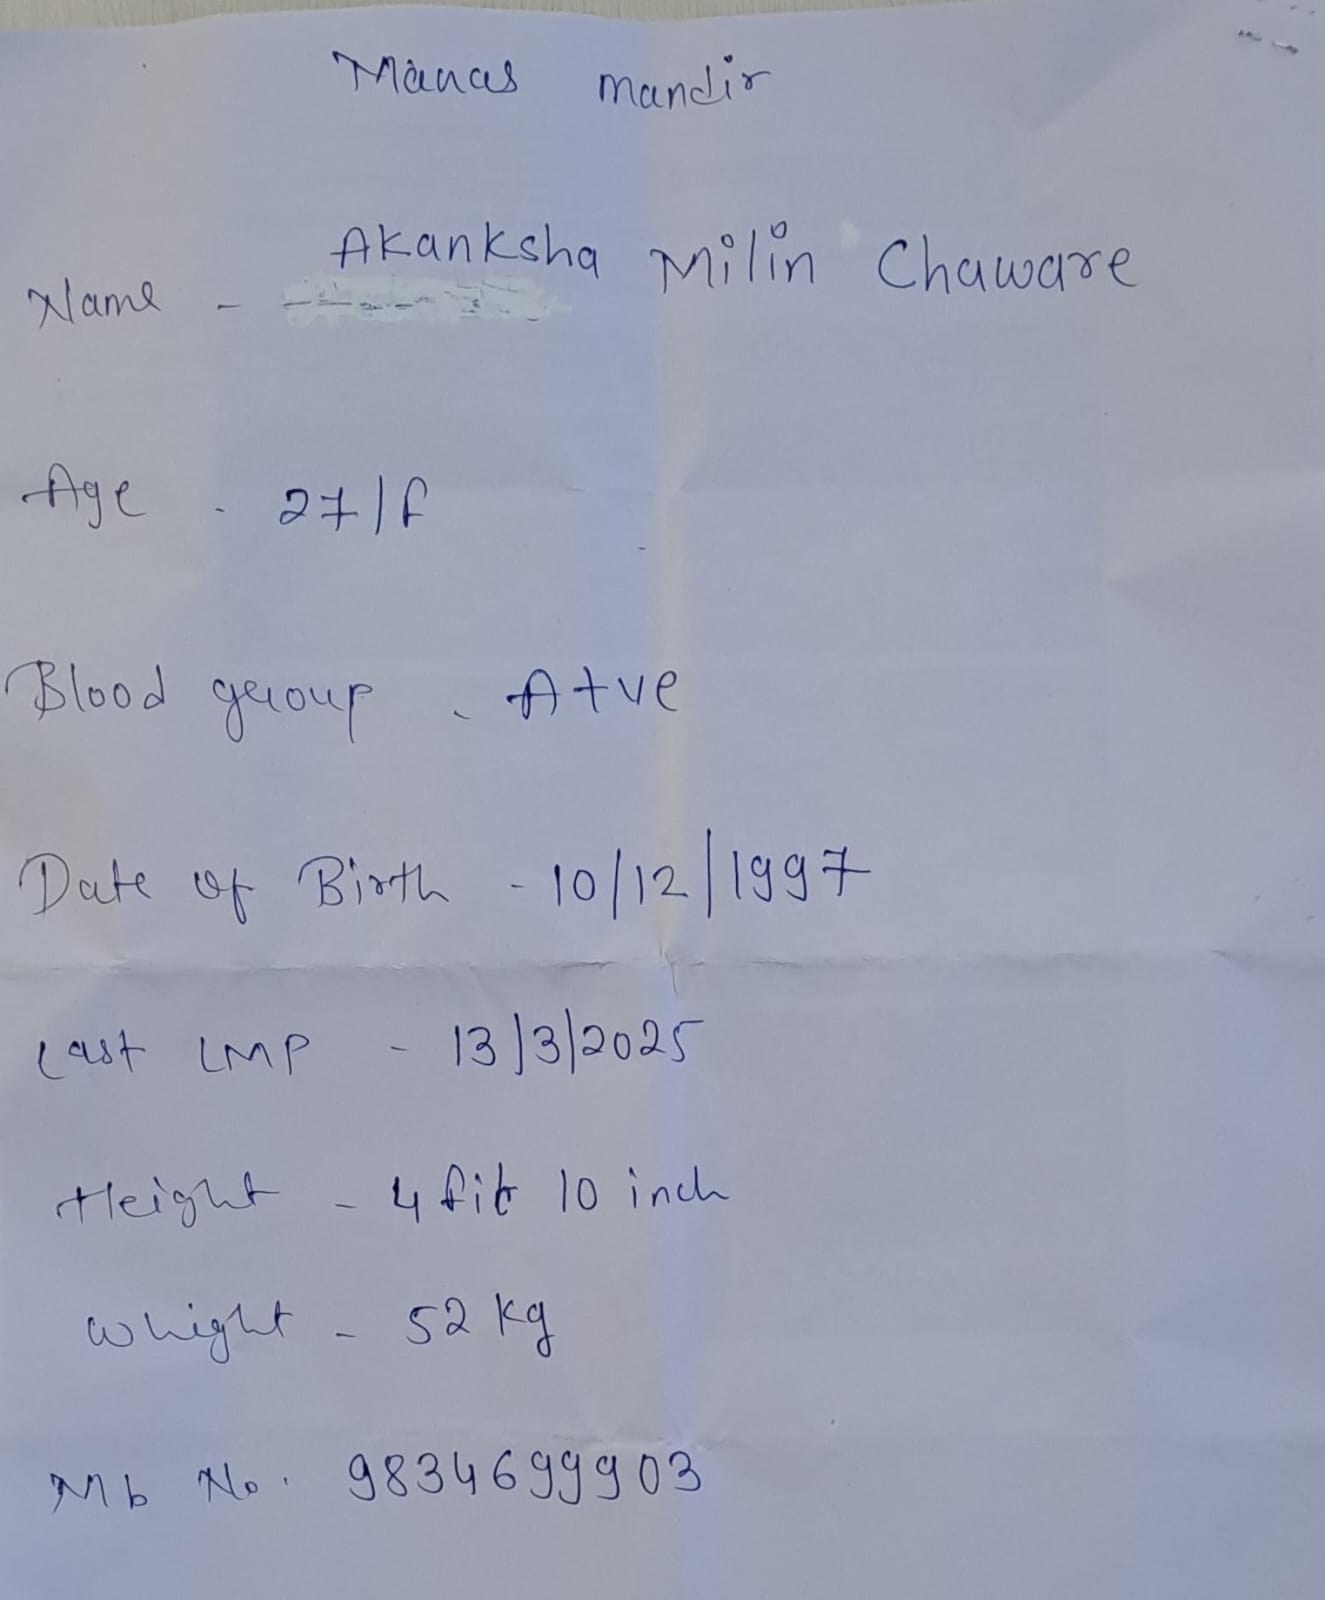 Manas mandir
Akanksha Milin Chaware
Name -
Age - 27/f
Blood group - A+ve
Date of Birth - 10/12/1997
Last LMP - 13/3/2025
Height - 4 fit 10 inch
Whight - 52 kg
Mb No. 9834699903